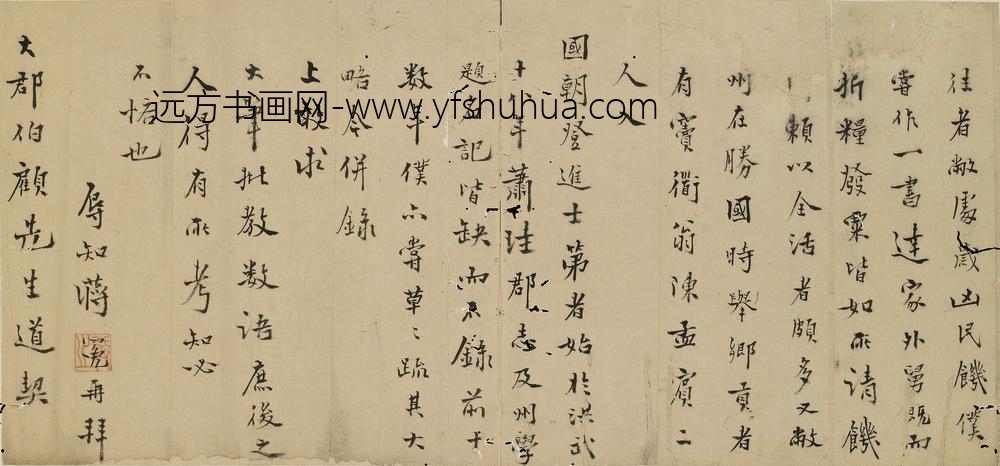 往者敝處歲凶民饑僕
嘗作一書達家外舅既而
折糧發粟皆如所請饑
賴以全活者頗多又敝
州在勝國時舉鄉貢者
有竇衢翁陳孟賓二
人入
國朝登進士第者始於洪武
十年蕭珪郡志及州學
題記皆缺而不錄前十
数年僕亦嘗草〻疏其大
略今併錄
上敢求
大筆批教数語庶後之
人得有所考知必
不悋也
辱知蔣再拜
大郡伯顧先生道契
远方书画网-www.yfshuhua.com